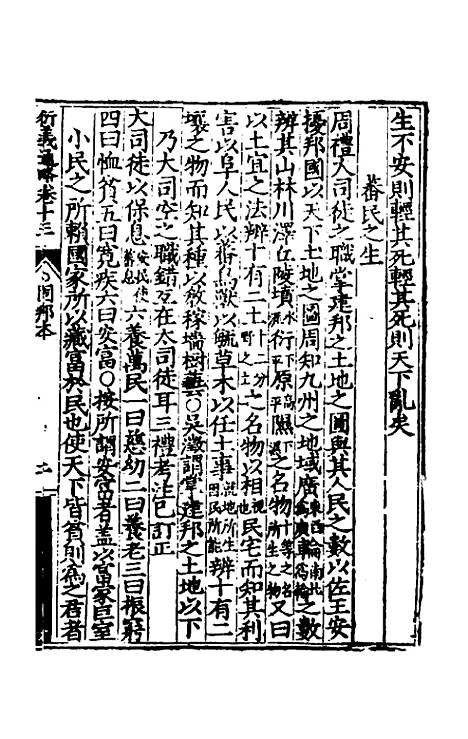 生不安則輕其死輕其死則天下亂矣
蕃民之生
周禮大司徒之職掌建邦之土地之圖與其人民之數以佐王安
擾邦國以天下土地之圖周知九州之地域廣東西輪南北為廣為輪之數
辨其山林川澤丘陵墳水涯衍下平原高平隰下濕之名物十等之名所生之物又曰
以土宜之法辨十有二土十二分野之土之名物以相視也民宅而知其利
害以阜人民以蕃鳥獸以毓草木以任土事就地所生因民所能辨十有二
壤之物而知其種以教稼穡樹藝○吳澂謂掌建邦之土地以下
乃大司空之職錯互在大司徒耳三禮考註已訂正
大司徒以保息安民使蕃息六養萬民一曰慈幼二曰養老三曰振窮
四曰恤貧五曰寬疾六曰安富○按所謂安富者蓋以富家巨室
小民之所賴國家所以藏富於民也使天下皆貧則為之君者
衍義通略卷十三 固邦本